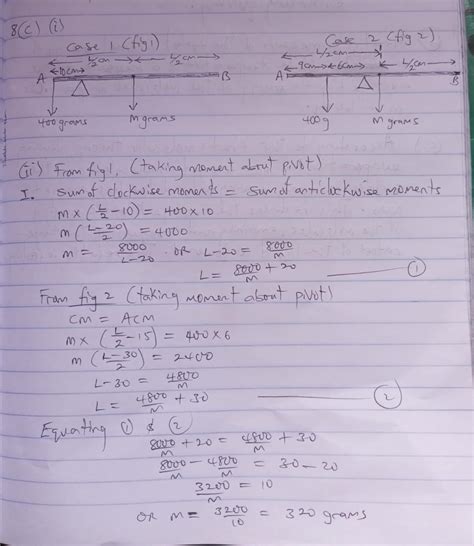 8(c) (i)
Case 1 (fig1)
Case 2 (fig 2)
L/2cm
L/2cm
L/2cm
L/2cm
A
10cm
B
A
9cm
6cm
B
400grams
m grams
400g
m grams
(ii) From fig1, (taking moment about pivot)
I. sum of clockwise moments = sum of anticlockwise moments
m × (L/2 - 10) = 400 × 10
m (L-20/2) = 4000
m = 8000/L-20 OR L-20 = 8000/M
L = 8000/M + 20 ①
From fig 2 (taking moment about pivot)
CM = ACM
m × (L/2 - 15) = 400 × 6
m (L-30/2) = 2400
L-30 = 4800/M
L = 4800/M + 30 ②
Equating ① & ②
8000/M + 20 = 4800/M + 30
8000/M - 4800/M = 30 - 20
3200/M = 10
OR M = 3200/10 = 320 grams